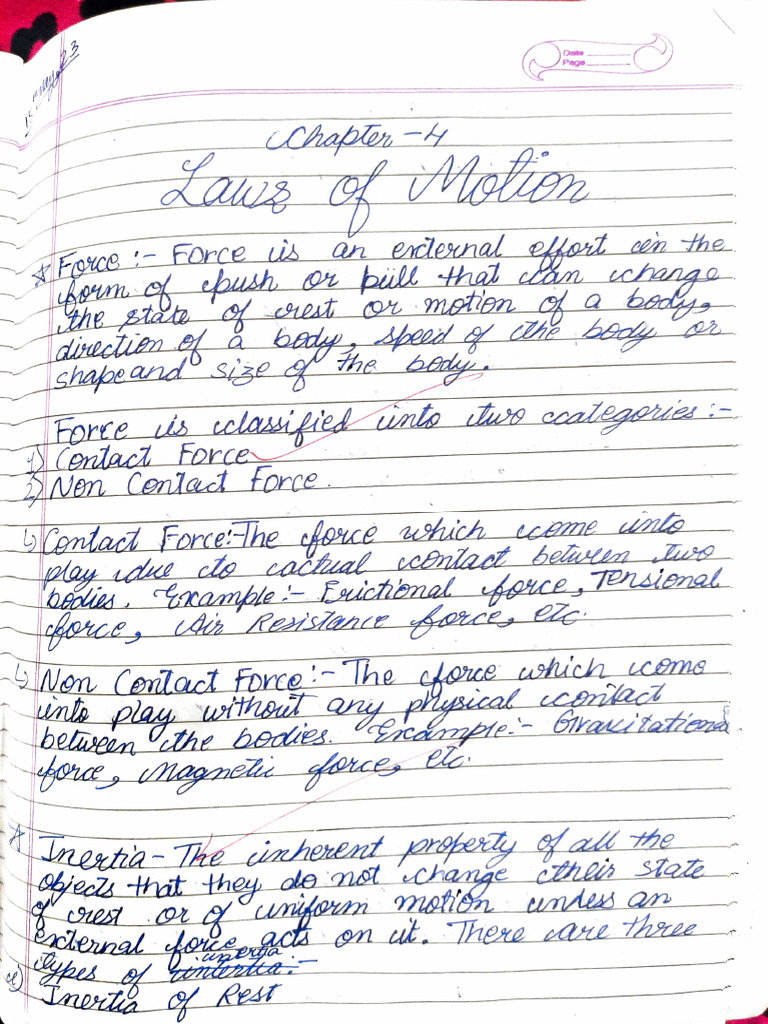 Date
Page
Chapter - 4
Laws of Motion
☆ Force :- Force is an external effort in the
form of push or pull that can change
the state of rest or motion of a body,
direction of a body, speed of the body or
shape and size of the body.
Force is classified into two categories :-
1) Contact Force
2) Non Contact Force.
↳ Contact Force:- The force which come into
play due to actual contact between two
bodies. Example :- Frictional force, Tensional
force, Air Resistance force, etc.
↳ Non Contact Force :- The force which come
into play without any physical contact
between the bodies. Example :- Gravitational
force, Magnetic force, etc.
☆ Inertia - The inherent property of all the
objects that they do not change their state
of rest or of uniform motion unless an
external force acts on it. There are three
types of inertia :-
Inertia of Rest